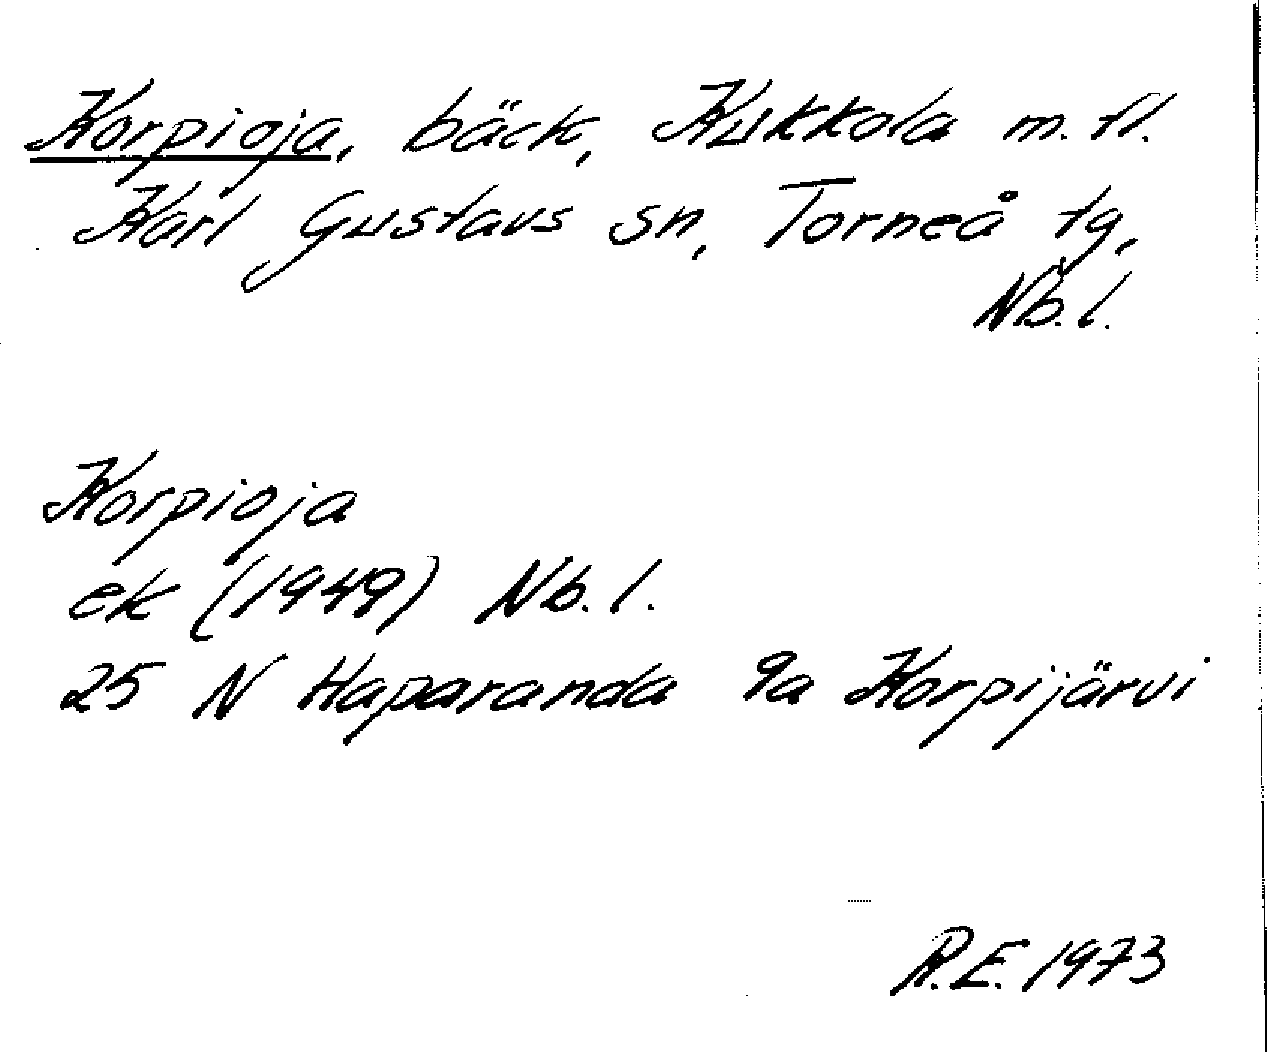 Korpioja, bäck, Kukkola m.fl.
Karl Gustavs sn, Torneå tg,
Nb.l.
Korpioja
ek (1949) Nb.l.
25 N Haparanda 9a Korpijärvi
R.E. 1973